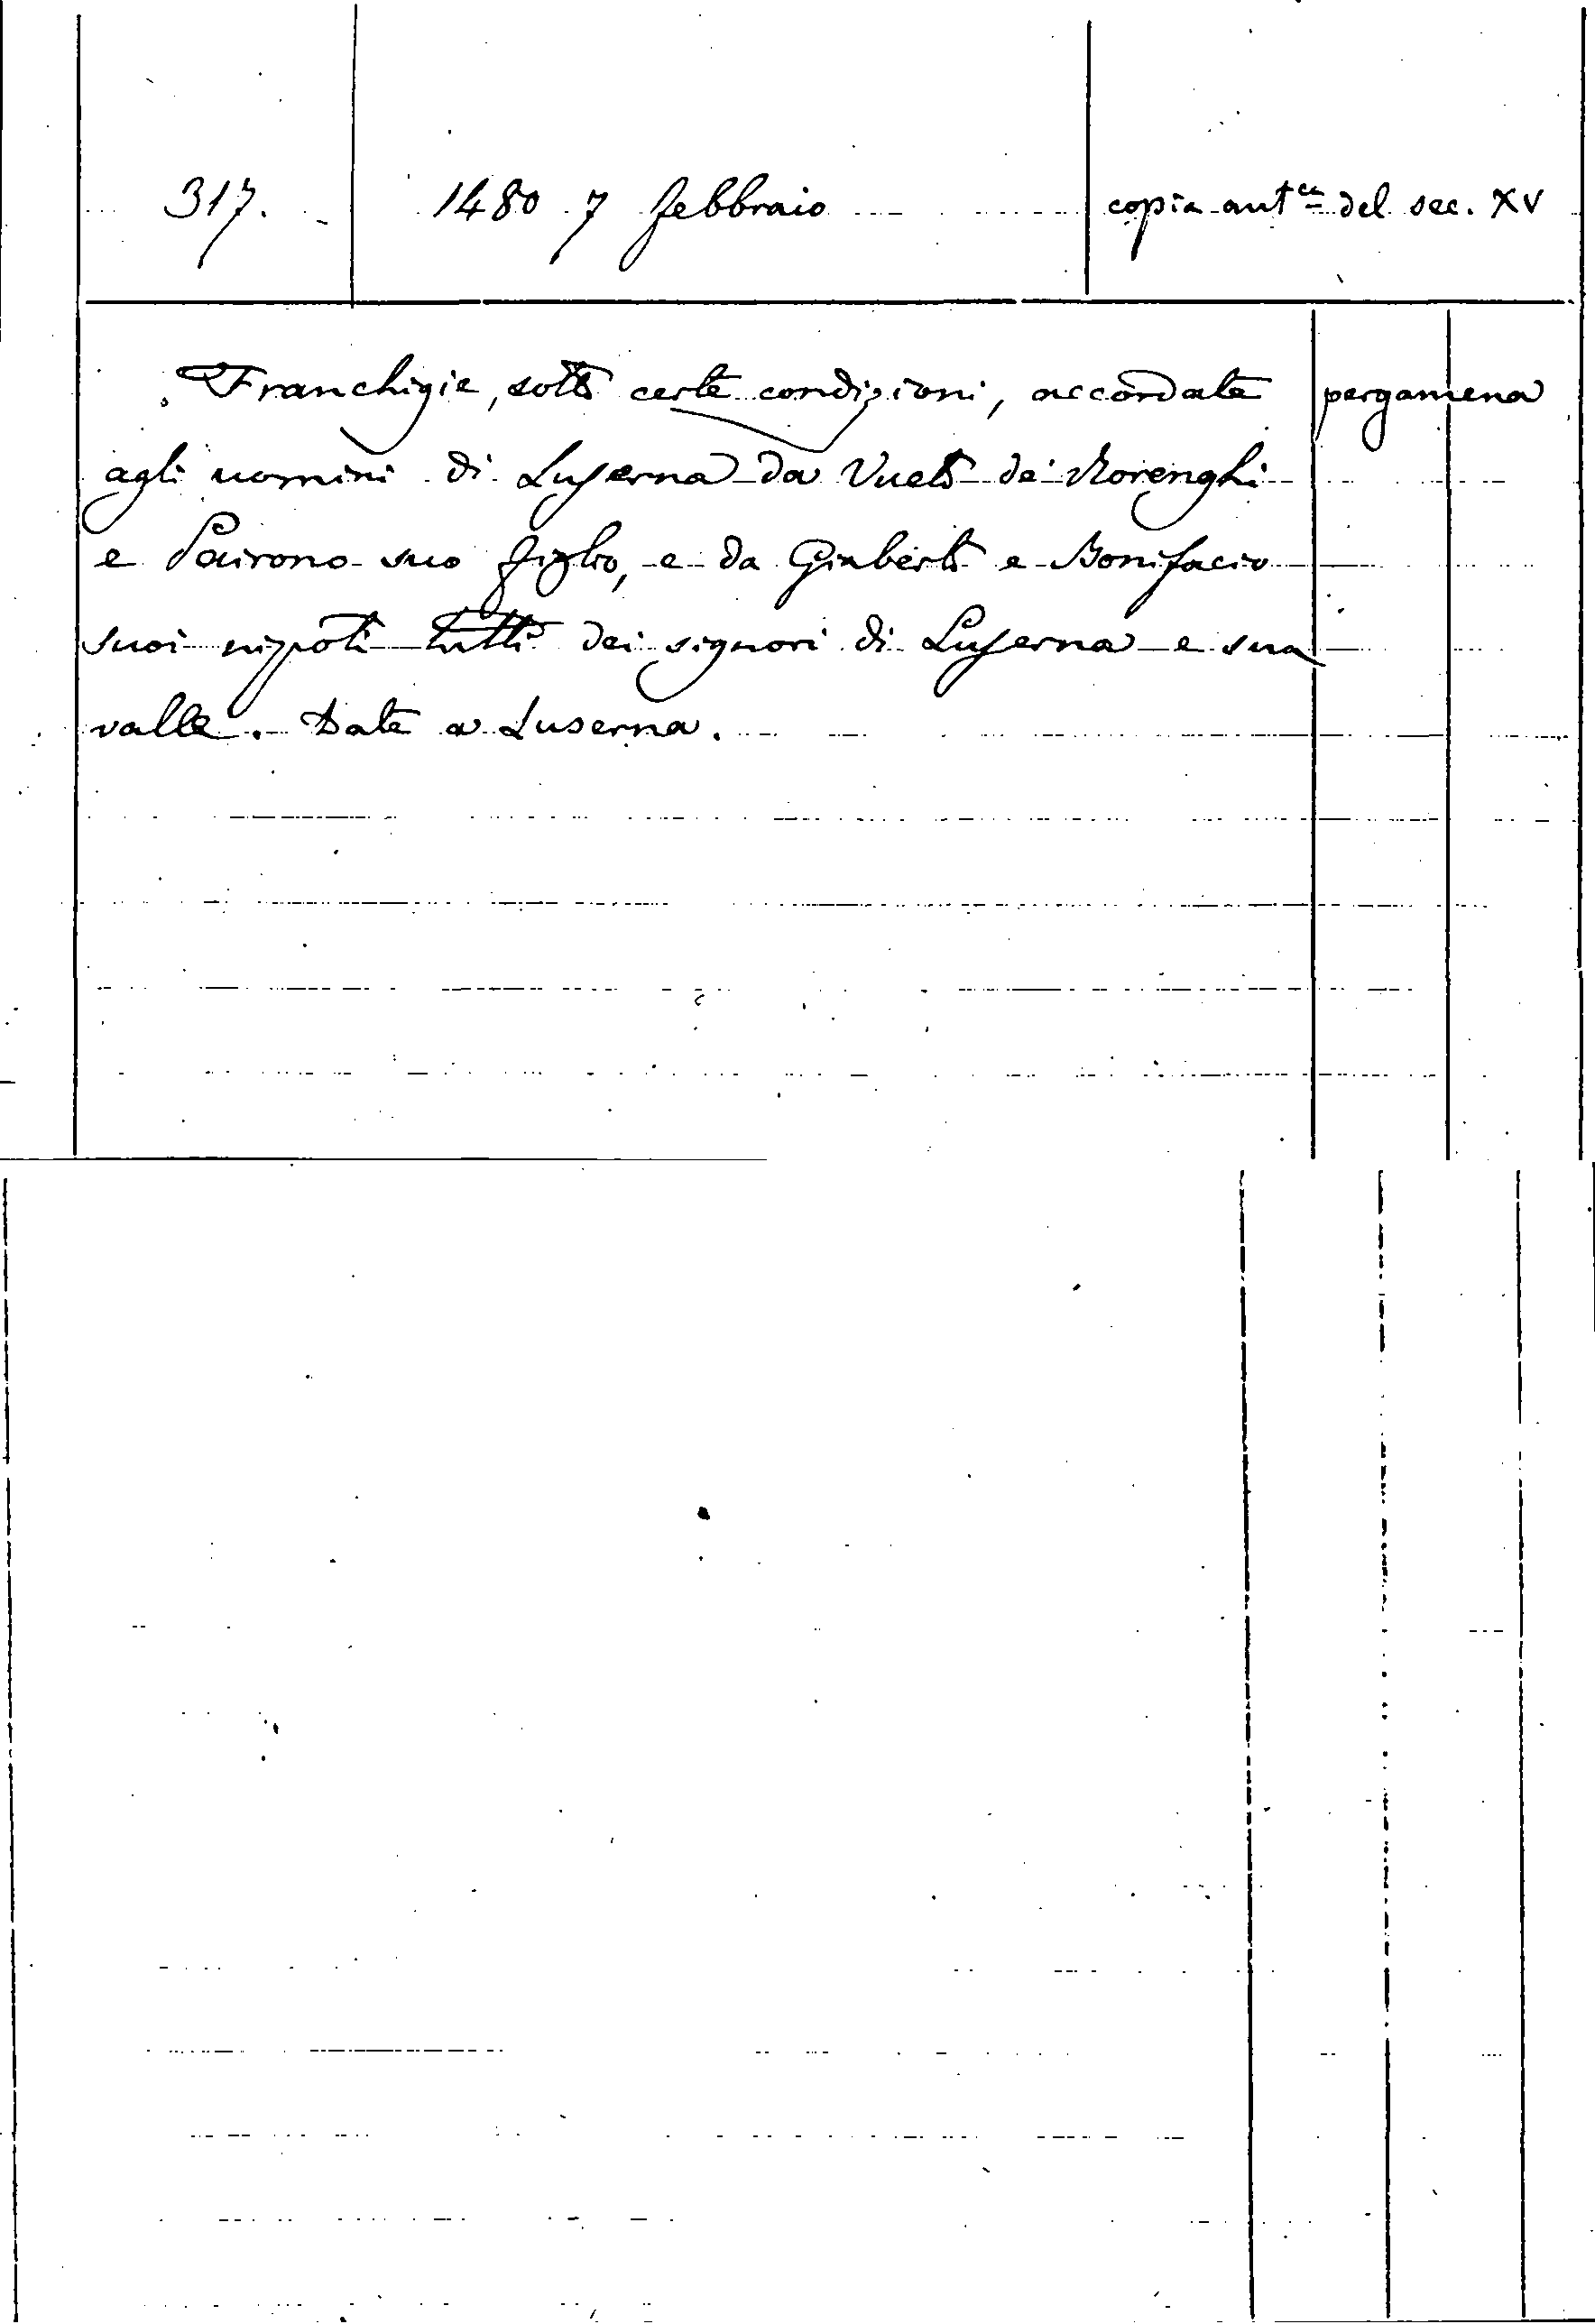 317. 1480 7 febbraio copia autca del sec. XV
Franchigie, sotto certe condizioni, accordate pergamena
agli uomini di Luserna da Vueto dei Rorenghi
e Pairono suo figlio, e da Giuberto e Bonifacio
suoi nipoti tutti dei signori di Luserna e sua
valle. Date a Luserna.